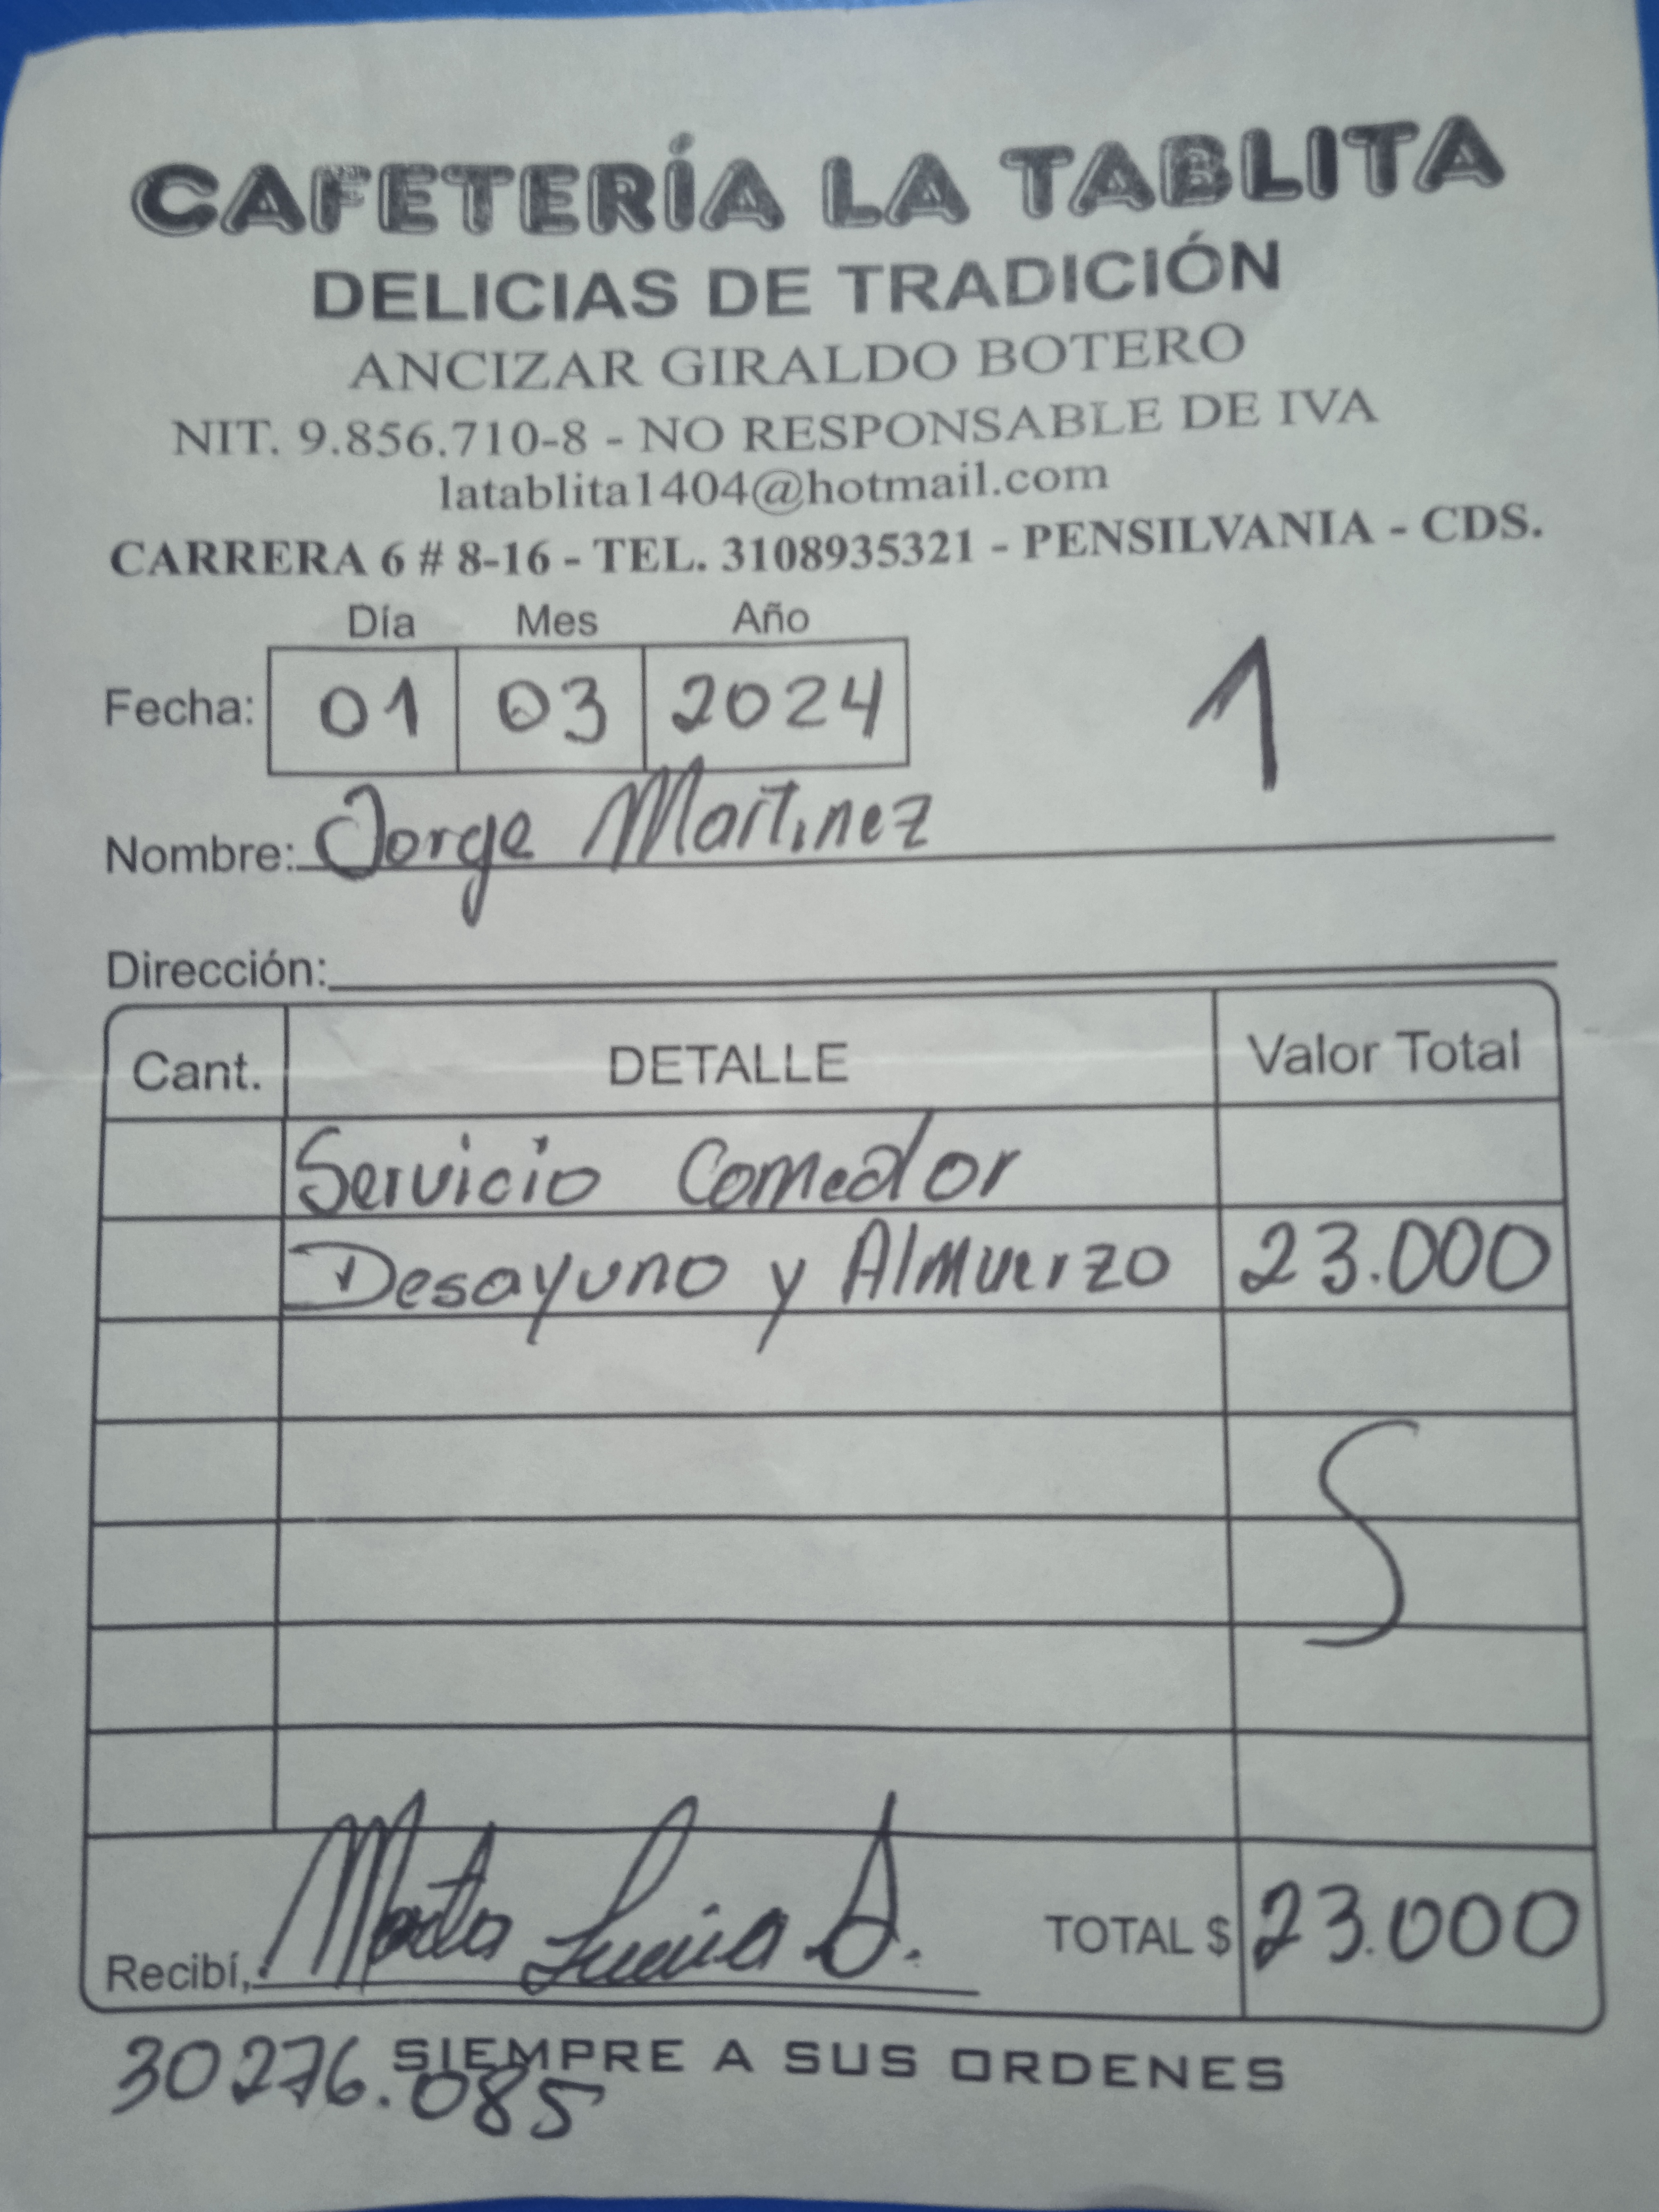 CAFETERÍA LA TABLITA
DELICIAS DE TRADICIÓN
ANCIZAR GIRALDO BOTERO
NIT. 9.856.710-8 - NO RESPONSABLE DE IVA
latablita1404@hotmail.com
CARRERA 6 # 8-16 - TEL. 3108935321 - PENSILVANIA - CDS.
Día Mes Año
Fecha: 01 03 2024 1
Nombre: Jorge Martinez
Dirección:
Cant. DETALLE Valor Total
Servicio Comedor
Desayuno y Almuerzo 23.000
Recibí, Marta Lucia O. TOTAL $ 23.000
SIEMPRE A SUS ORDENES
30276.085